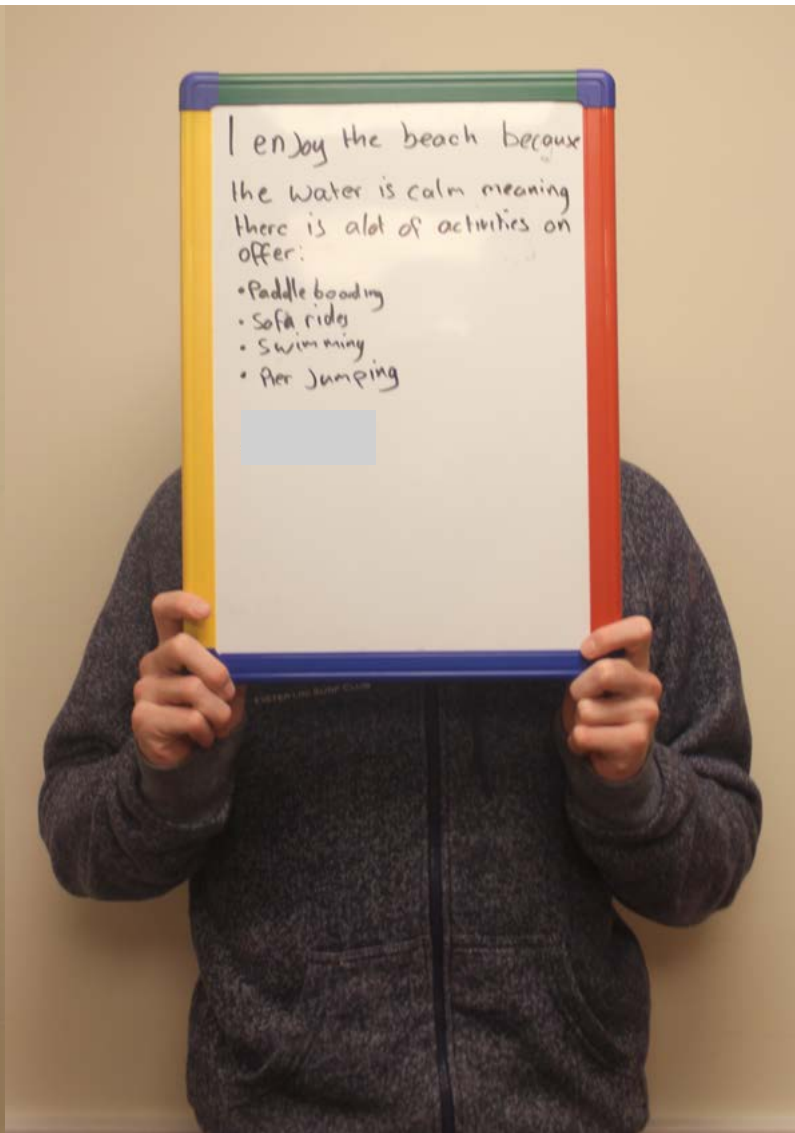 I enjoy the beach because
the water is calm meaning
there is alot of activities on
offer:
• Paddle boarding
• Sofa rides
• Swimming
• Pier Jumping
SURF CLUB